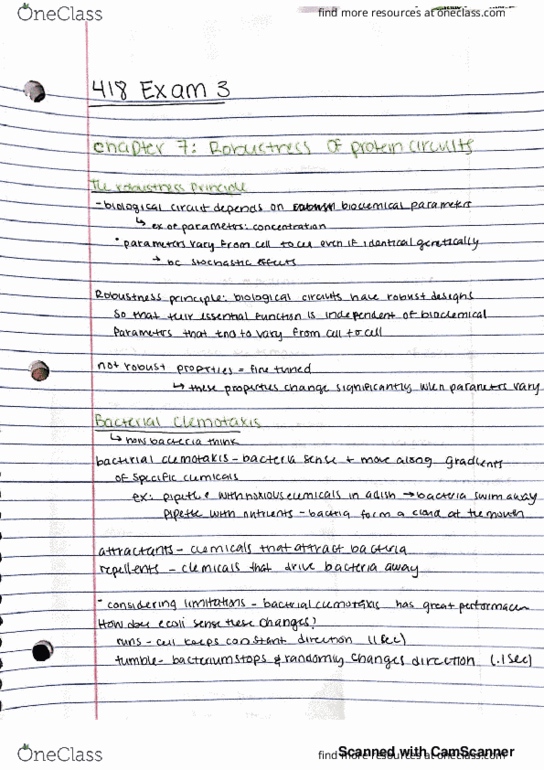 OneClass
find more resources at oneclass.com
418 Exam 3
Chapter 7: Robustness of protein circuits
The robustness principle
- biological circuit depends on biochemical parameters
↳ ex of parameters: concentration
• parameters vary from cell to cell even if identical genetically
→ bc stochastic effects
Robustness principle: biological circuits have robust designs
so that their essential function is independent of biochemical
parameters that tend to vary from cell to cell
not robust properties = fine tuned
↳ these properties change significantly when parameters vary
Bacterial Chemotaxis
↳ how bacteria think
bacterial chemotaxis - bacteria sense + move along gradients
of specific chemicals
ex: pipette with noxious chemicals in a dish → bacteria swim away
pipette with nutrients - bacteria form a cloud at the mouth
attractants - chemicals that attract bacteria
repellents - chemicals that drive bacteria away
• considering limitations - bacterial chemotaxis has great performance
How does ecoli sense these changes?
runs - cell keeps constant direction (1sec)
tumble - bacterium stops & randomly changes direction (.1sec)
OneClass
find more resources at oneclass.com
Scanned with CamScanner